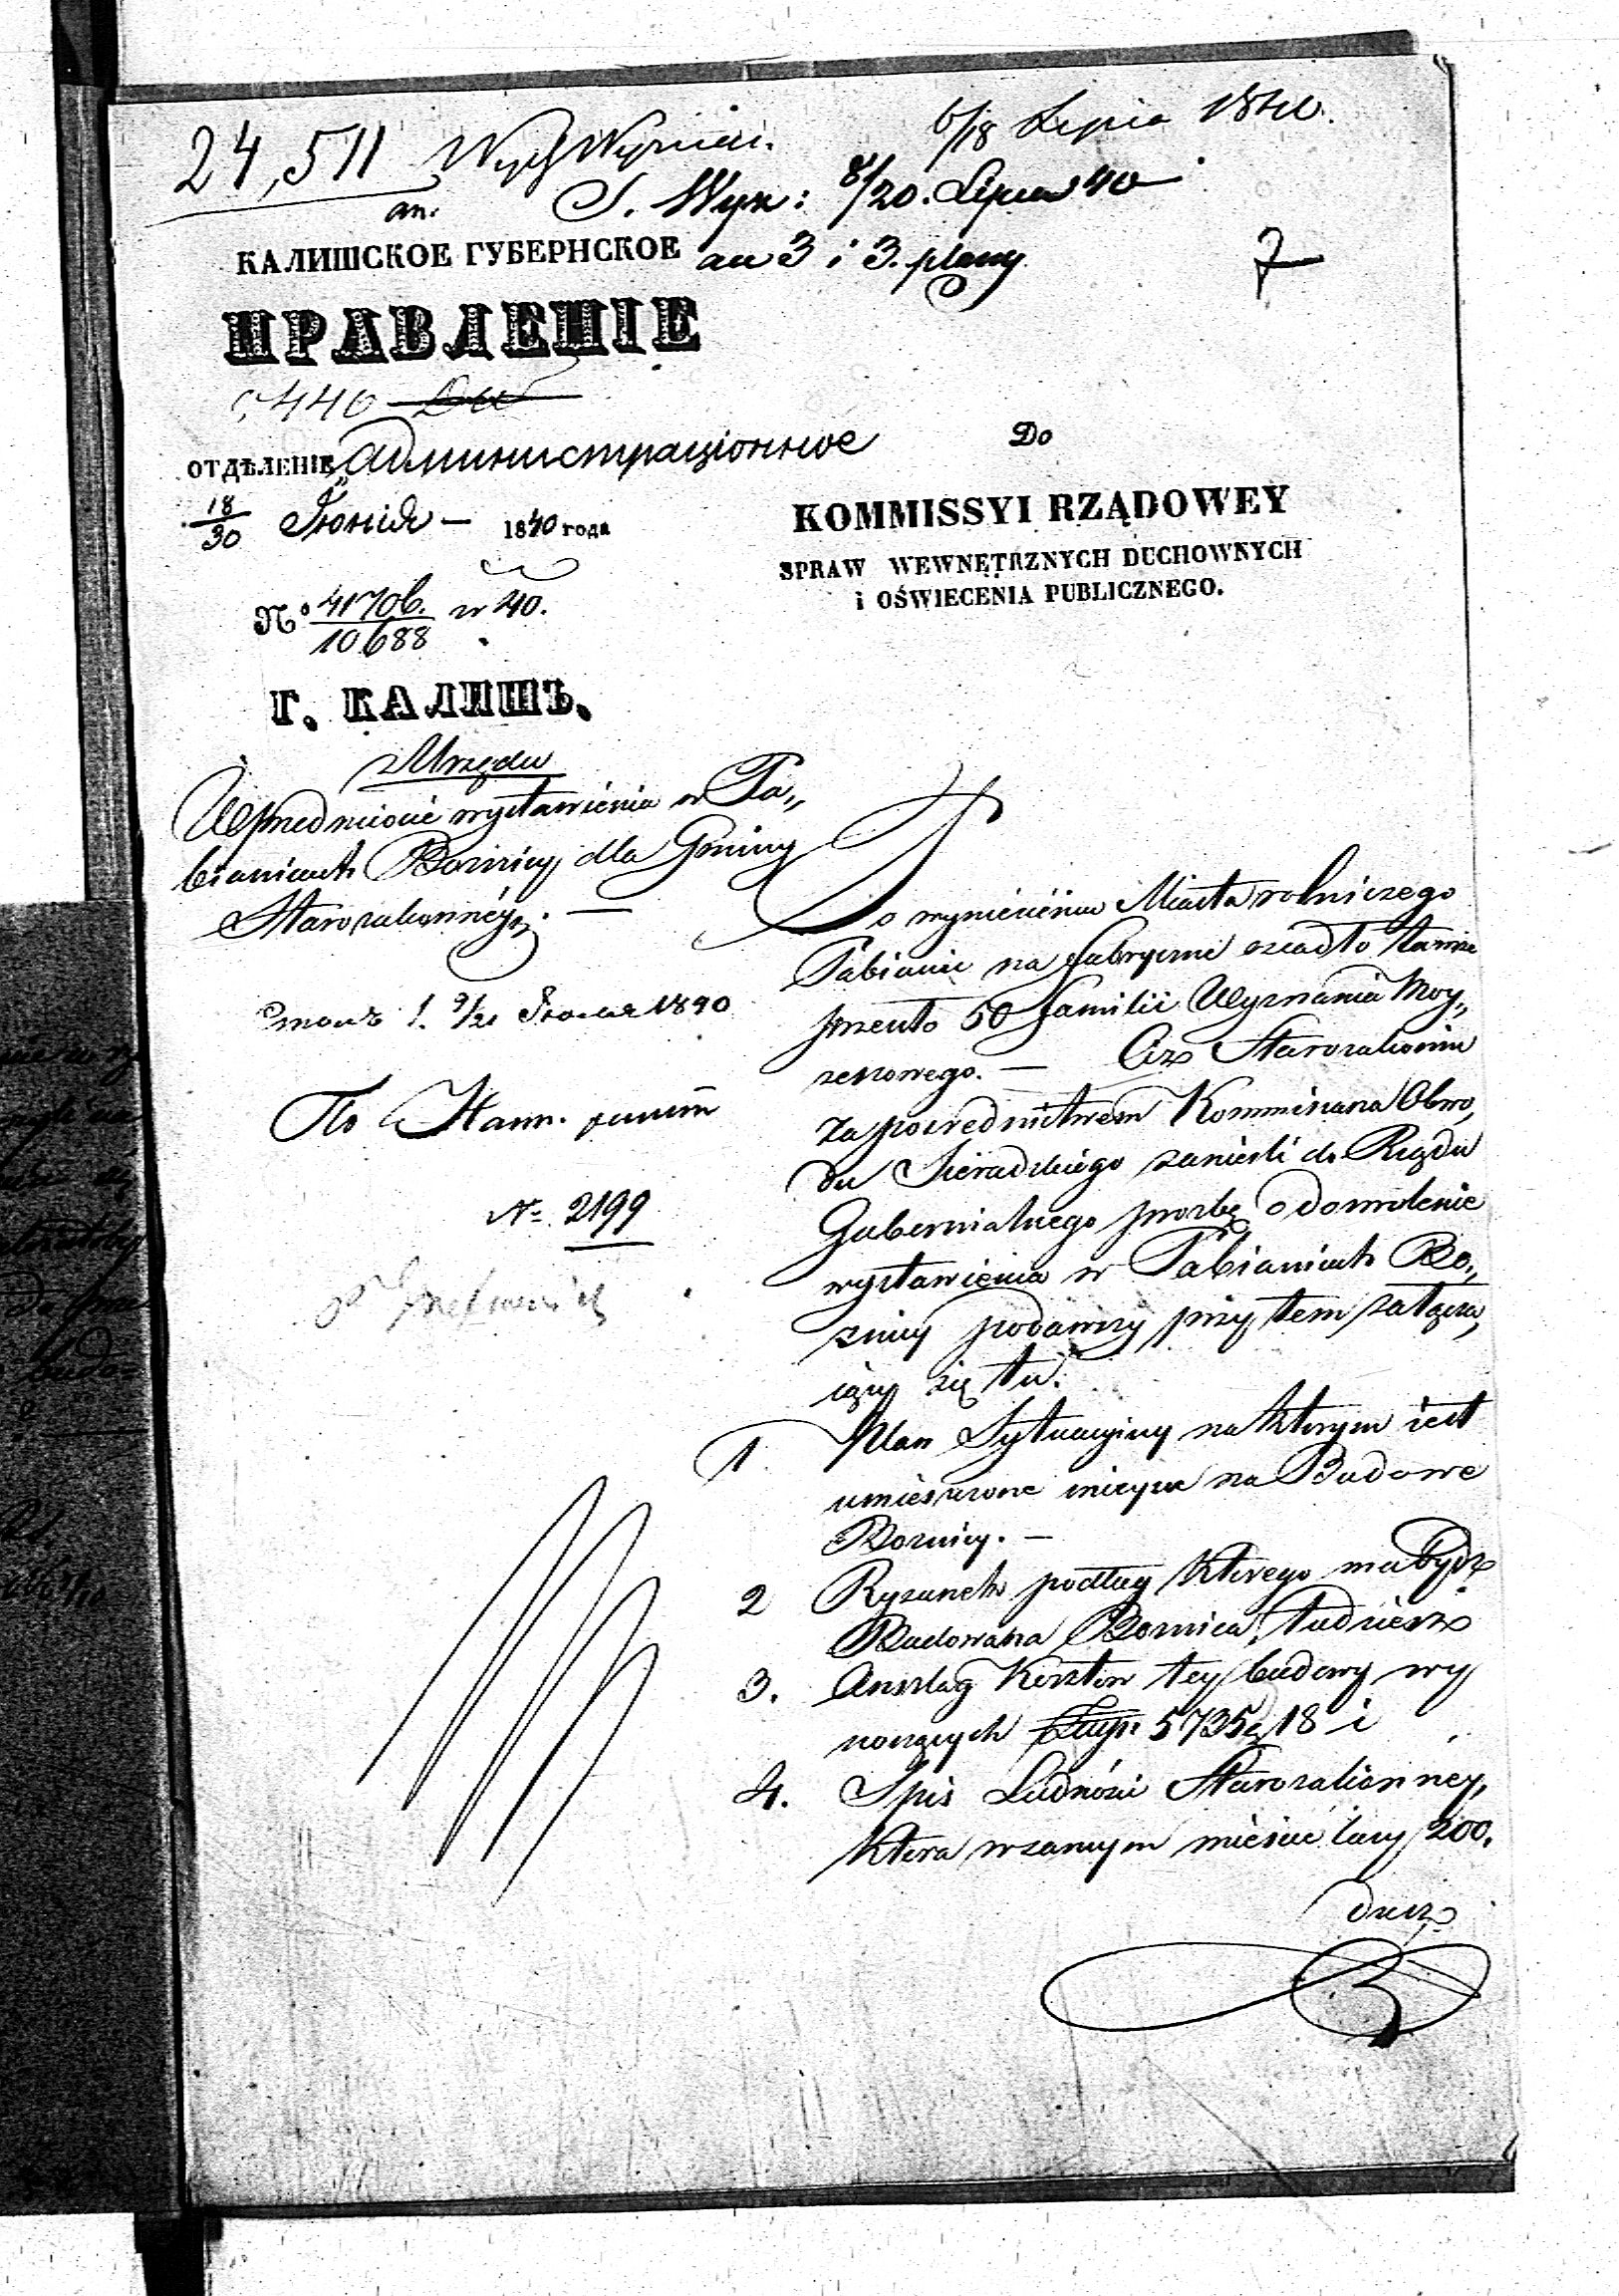 24,511
6/18 Lipca 1840.
S. Wyzn: 8/20. Lipca 40
an.
an 3 i 3. plany
7
КАЛИШСКОЕ ГУБЕРНСКОЕ
ПРАВЛЕНІЕ
ОТДѢЛЕНІЕ Администраціонное
18/30 Іюнія — 1840 года
№ 41706./10688 w 40.
Г. КАЛИШЪ.
Do
KOMMISSYI RZĄDOWEY
SPRAW WEWNĘTRZNYCH DUCHOWNYCH
i OŚWIECENIA PUBLICZNEGO.
z Urzędu
W przedmiocie wystawienia w Pa„
bianicach Bożnicy dla Gminy
Starozakonnéy. —
1. 9/21 1840
№ 2199
Po wyniesieniu Miasta rolniczego
Pabianic na fabryczne osiadło tamże
przeszło 50 familii Wyznania Moy„
zeszowego. — Ciż Starozakonni
za pośrednictwem Kommissarza Obwo„
du Sieradzkiego zanieśli do Rządu
Gubernialnego prożbę o dozwolenie
wystawienia w Pabianicach Bo„
żnicy podawszy przytem załącza„
iący się tu:
1. Plan Sytuacyiny na którym iest
umieszczone mieysce na Budowę
Bożnicy. —
2 Rysunek podług którego ma bydź
Budowana Bożnica, tudzież
3. Anszlag Kosztów tey budowy wy
noszących Złp: 5735 g 18 i
4. Spis Ludności Starozakonnéy,
która w samym mieście liczy 200.
dusz